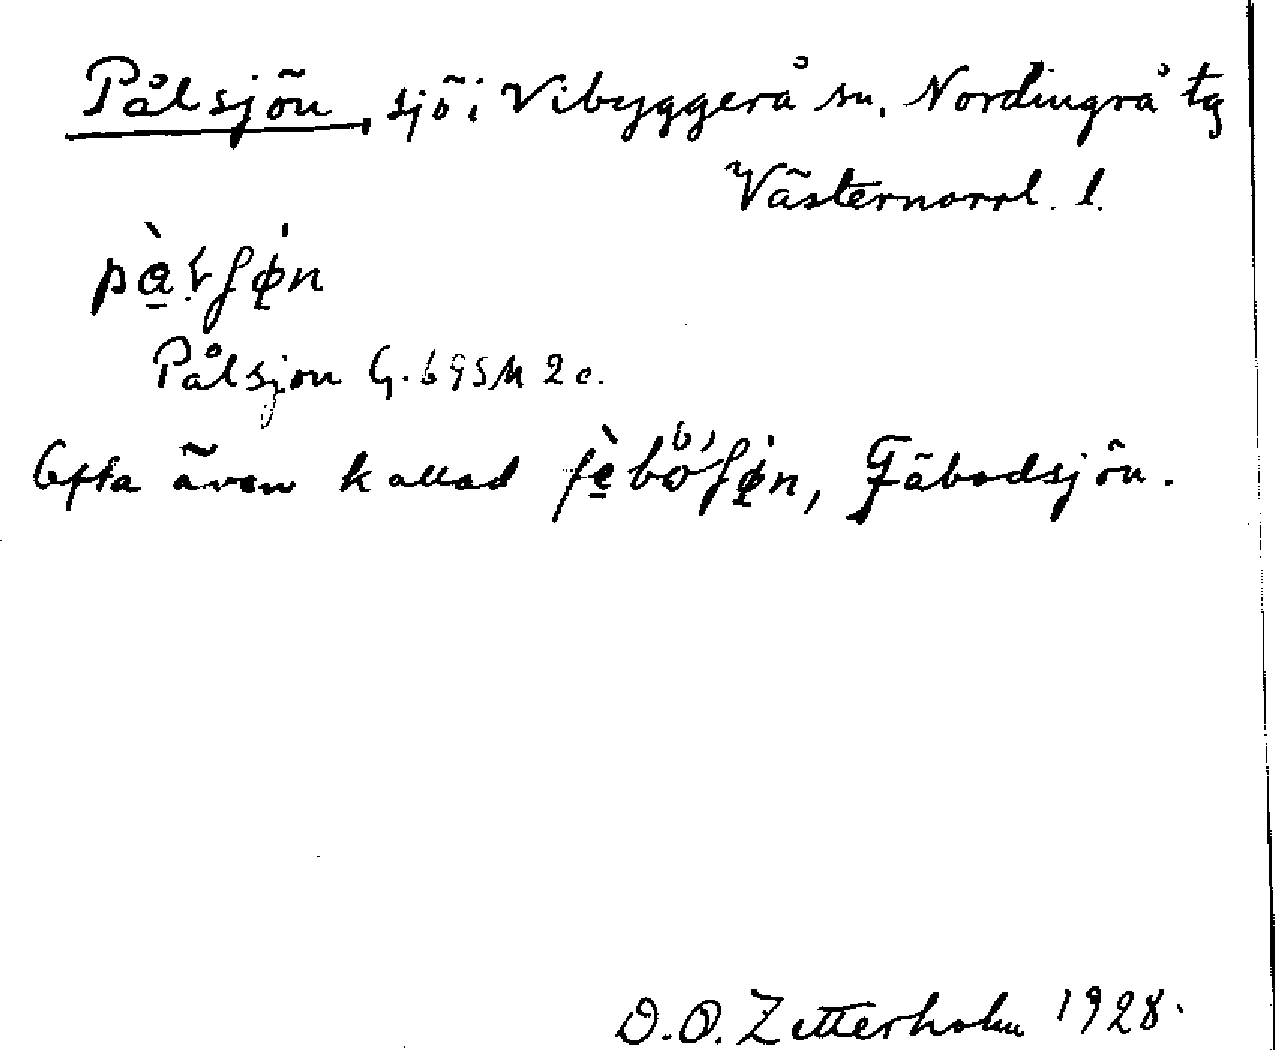 Pålsjön, sjö i Vibyggerå sn. Nordingrå tg
Västernorrl. l.
Pålsjön G. 69 SM 2 c.
Ofta även kallad Fäbodsjön.
D.O. Zetterholm 1928.